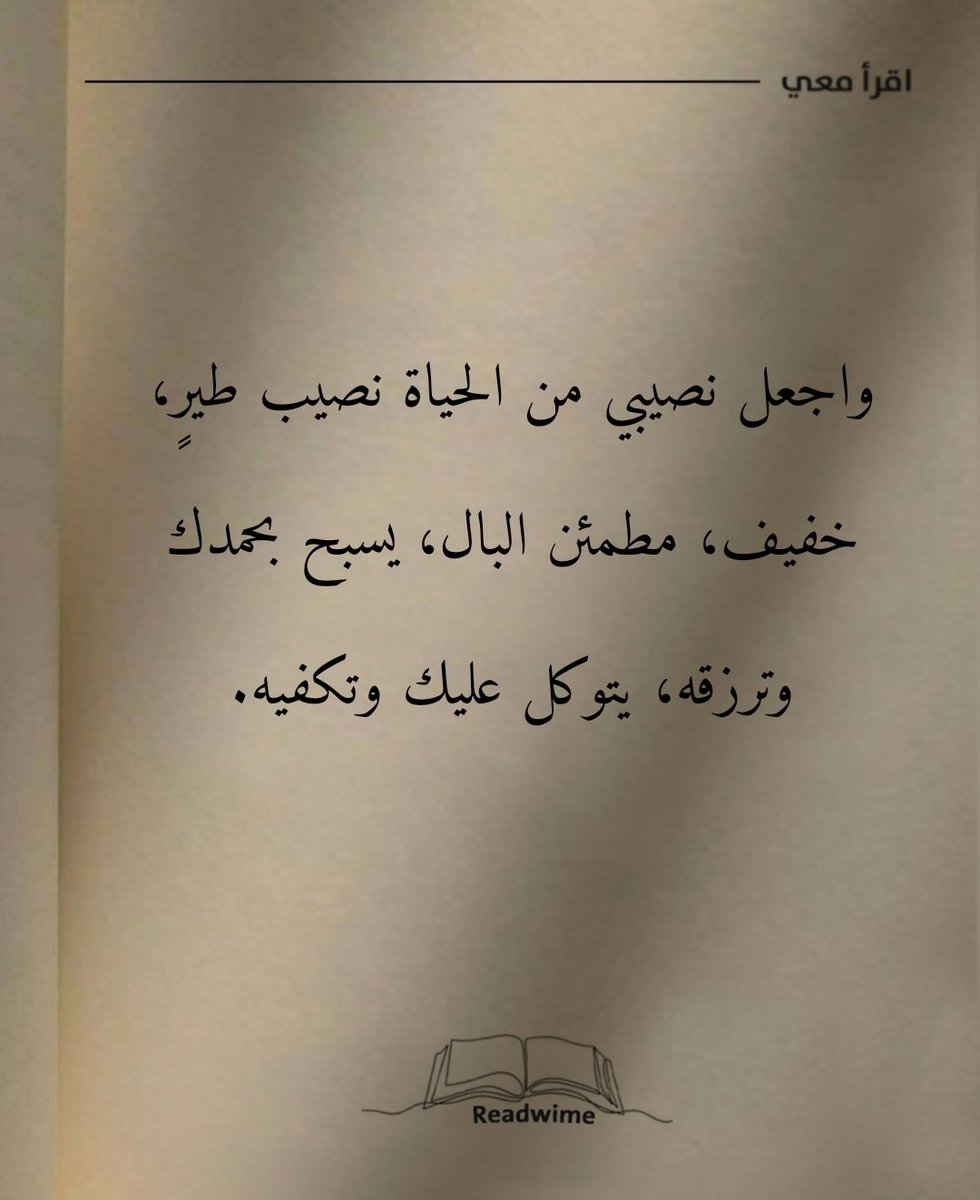 اقرأ معي
واجعل نصيبي من الحياة نصيب طيرٍ،
خفيف، مطمئن البال، يسبح بحمدك
وترزقه، يتوكل عليك وتكفيه.
Readwime